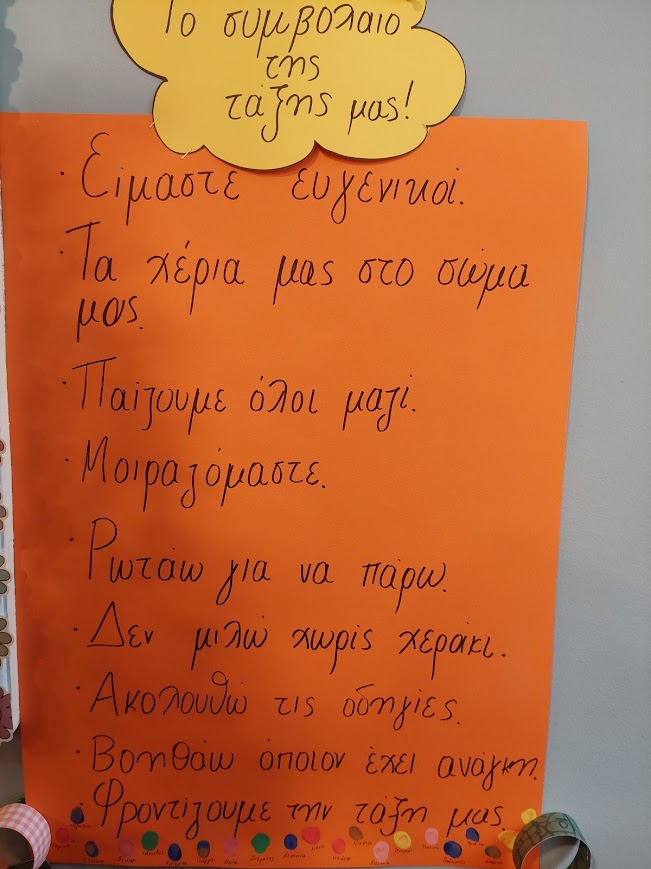 Το συμβόλαιο
της
τάξης μας!
· Είμαστε ευγενικοί.
· Τα χέρια μας στο σώμα
μας.
· Παίζουμε όλοι μαζί.
· Μοιραζόμαστε.
· Ρωτάω για να πάρω.
· Δεν μιλώ χωρίς χεράκι.
· Ακολουθώ τις οδηγίες.
· Βοηθάω όποιον έχει ανάγκη.
· Φροντίζουμε την τάξη μας.